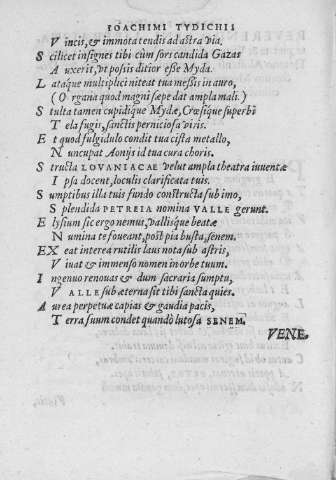 IOACHIMI TYDICHII
Vincis, & immota tendis ad astra via.
Scilicet insignes tibi cùm sors candida Gazas
Auxerit, vt possis ditior esse Myda.
Lataque multiplici niteat tua messis in auro,
(Organa quod magni sæpe dat ampla mali.)
Stulta tamen cupidique Mydæ, Crœsique superbi
Tela fugis, sanctis perniciosa viris.
Et quod fulgidulo condit tua cista metallo,
Nuncupat Aonijs id tua cura choris.
Structa LOVANIACAE velut ampla theatra iuuentæ
Ipsa docent, loculis clarificata tuis.
Sumptibus illa tuis fundo constructa sub imo,
Splendida PETREIA nomina VALLE gerunt.
Elysium sic ergo nemus, vallisque beatæ
Numina te foueant, post pia busta, senem.
EXeat interea rutilis laus nota sub astris,
Viuat & immenso nomen in orbe tuum.
Ingenuo renouas & dum sacraria sumptu,
VALLE sub æterna sit tibi sancta quies.
Aurea perpetuæ capias & gaudia pacis,
Terra suum condet quandò lutosa SENEM.
VENE.